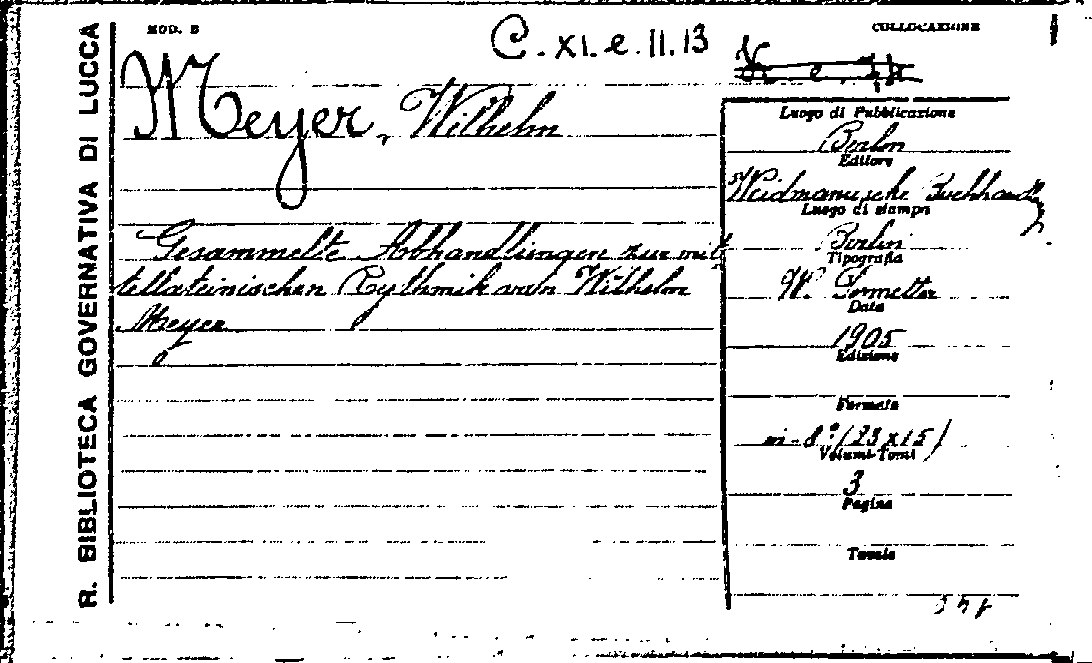 R. BIBLIOTECA GOVERNATIVA DI LUCCA
MOD. B
C. XI. e. 11. 13
COLLOCAZIONE
Meyer, Wilhelm
Gesammelte Abhandlungen zur mit
tellateinischen Rythmik van Wilhelm
Meyer
Luogo di Pubblicazione
Berlin
Editore
Weidmannsche Buchhandl
Luogo di stampa
Berlin
Tipografia
W. Pormetter
Data
1905
Edizione
Formato
in-8° (23x15)
Volumi-Tomi
3
Pagine
Tavole